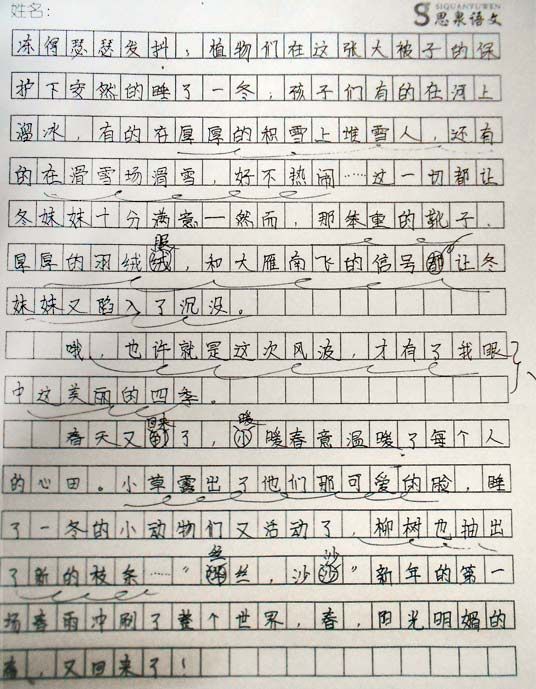 姓名:
SIQUANYUWEN
思泉语文
冻得瑟瑟发抖，植物们在这张大被子的保
护下安然的睡了一冬，孩子们有的在河上
溜冰，有的在厚厚的积雪上堆雪人，还有
的在滑雪场滑雪，好不热闹……这一切都让
冬妹妹十分满意——然而，那笨重的靴子、
厚厚的羽绒服，和大雁南飞的信号都让冬
妹妹又陷入了沉没。
哦，也许就是这次风波，才有了我眼
中这美丽的四季。
春天又回来了，暖暖春意温暖了每个人
的心田。小草露出了他们那可爱的脸，睡
了一冬的小动物们又活动了，柳树也抽出
了新的枝条……“丝丝，沙沙”新年的第一
场春雨冲刷了整个世界，春，阳光明媚的
春，又回来了！